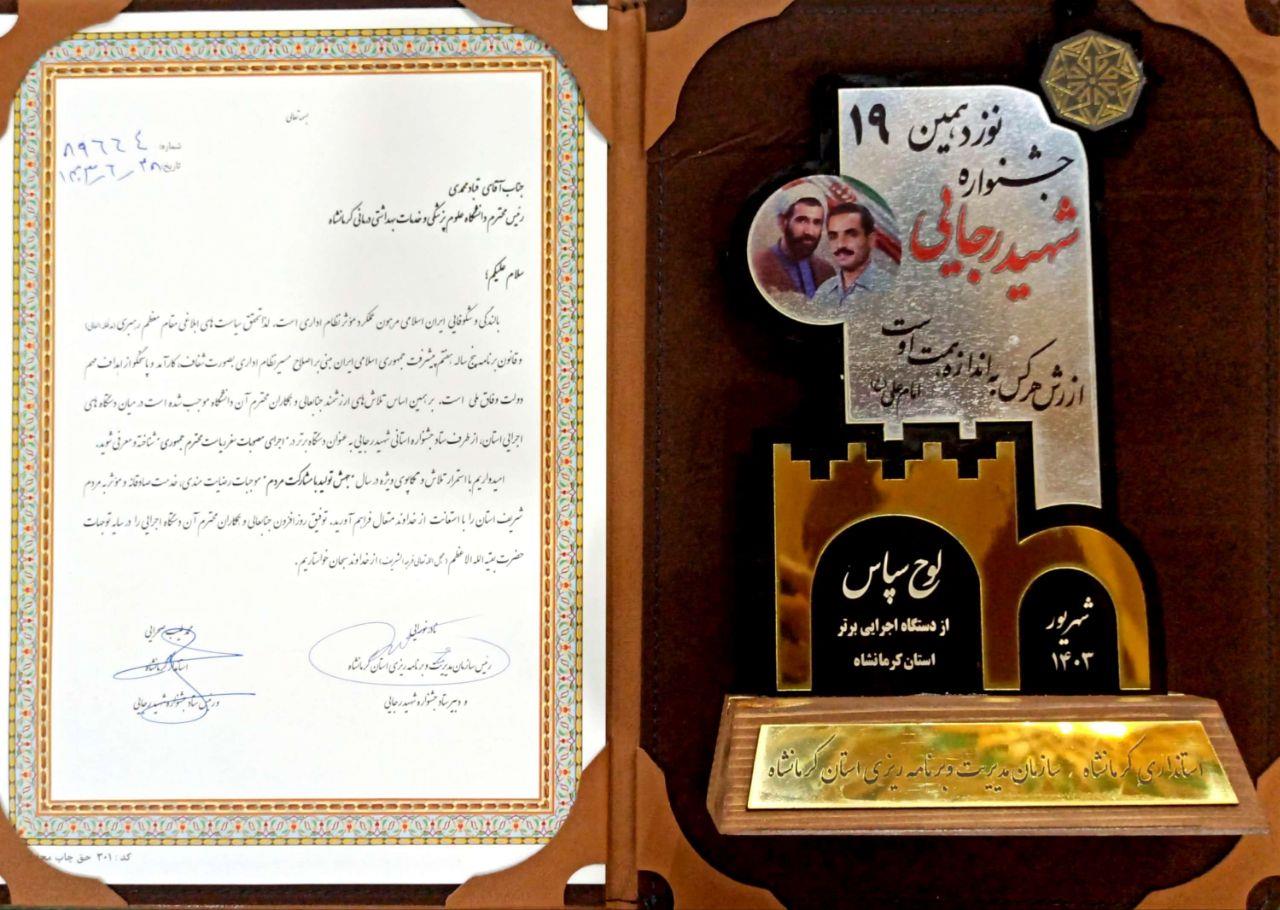 بسمه تعالی
شماره: ۸۹۶۶۴
تاریخ: ۱۴۰۳/۶/۲۸
جناب آقای قبادمحمدی
رئیس محترم دانشگاه علوم پزشکی و خدمات بهداشتی درمانی کرمانشاه
سلام علیکم؛
بالندگی و شکوفایی ایران اسلامی مرهون عملکرد مؤثر نظام اداری است. لذا تحقق سیاست های ابلاغی مقام معظم رهبری (مدظله العالی)
و قانون برنامه پنج ساله هفتم پیشرفت جمهوری اسلامی ایران مبنی بر اصلاح مسیر نظام اداری بصورت شفاف، کارآمد و پاسخگو از اهداف مهم
دولت وفاق ملی است. بر همین اساس تلاش های ارزشمند جنابعالی و همکاران محترم آن دانشگاه موجب شده است در میان دستگاه های
اجرایی استان، از طرف ستاد جشنواره استانی شهید رجایی به عنوان دستگاه برتر در "اجرای مصوبات سفر ریاست محترم جمهوری" شناخته و معرفی شوید.
امیدواریم با استمرار تلاش و تکاپوی ویژه در سال "جهش تولید با مشارکت مردم" موجبات رضایت مندی، خدمت صادقانه و مؤثر به مردم
شریف استان را با استعانت از خداوند متعال فراهم آورید. توفیق روزافزون جنابعالی و همکاران محترم آن دستگاه اجرایی را در سایه توجهات
حضرت بقیه الله الاعظم (عجل الله تعالی فرجه الشریف) از خداوند سبحان خواستاریم.
نادر نوروزی
رئیس سازمان مدیریت و برنامه ریزی استان کرمانشاه
و دبیر ستاد جشنواره شهید رجایی
استاندار کرمانشاه
و رئیس ستاد جشنواره شهید رجایی
کد: ۳۰۱ حق چاپ
نوزدهمین ۱۹
جشنواره
شهید رجایی
ارزش هرکس به اندازه همت اوست
امام علی (ع)
لوح سپاس
از دستگاه اجرایی برتر
استان کرمانشاه
شهریور
۱۴۰۳
استانداری کرمانشاه، سازمان مدیریت و برنامه ریزی استان کرمانشاه